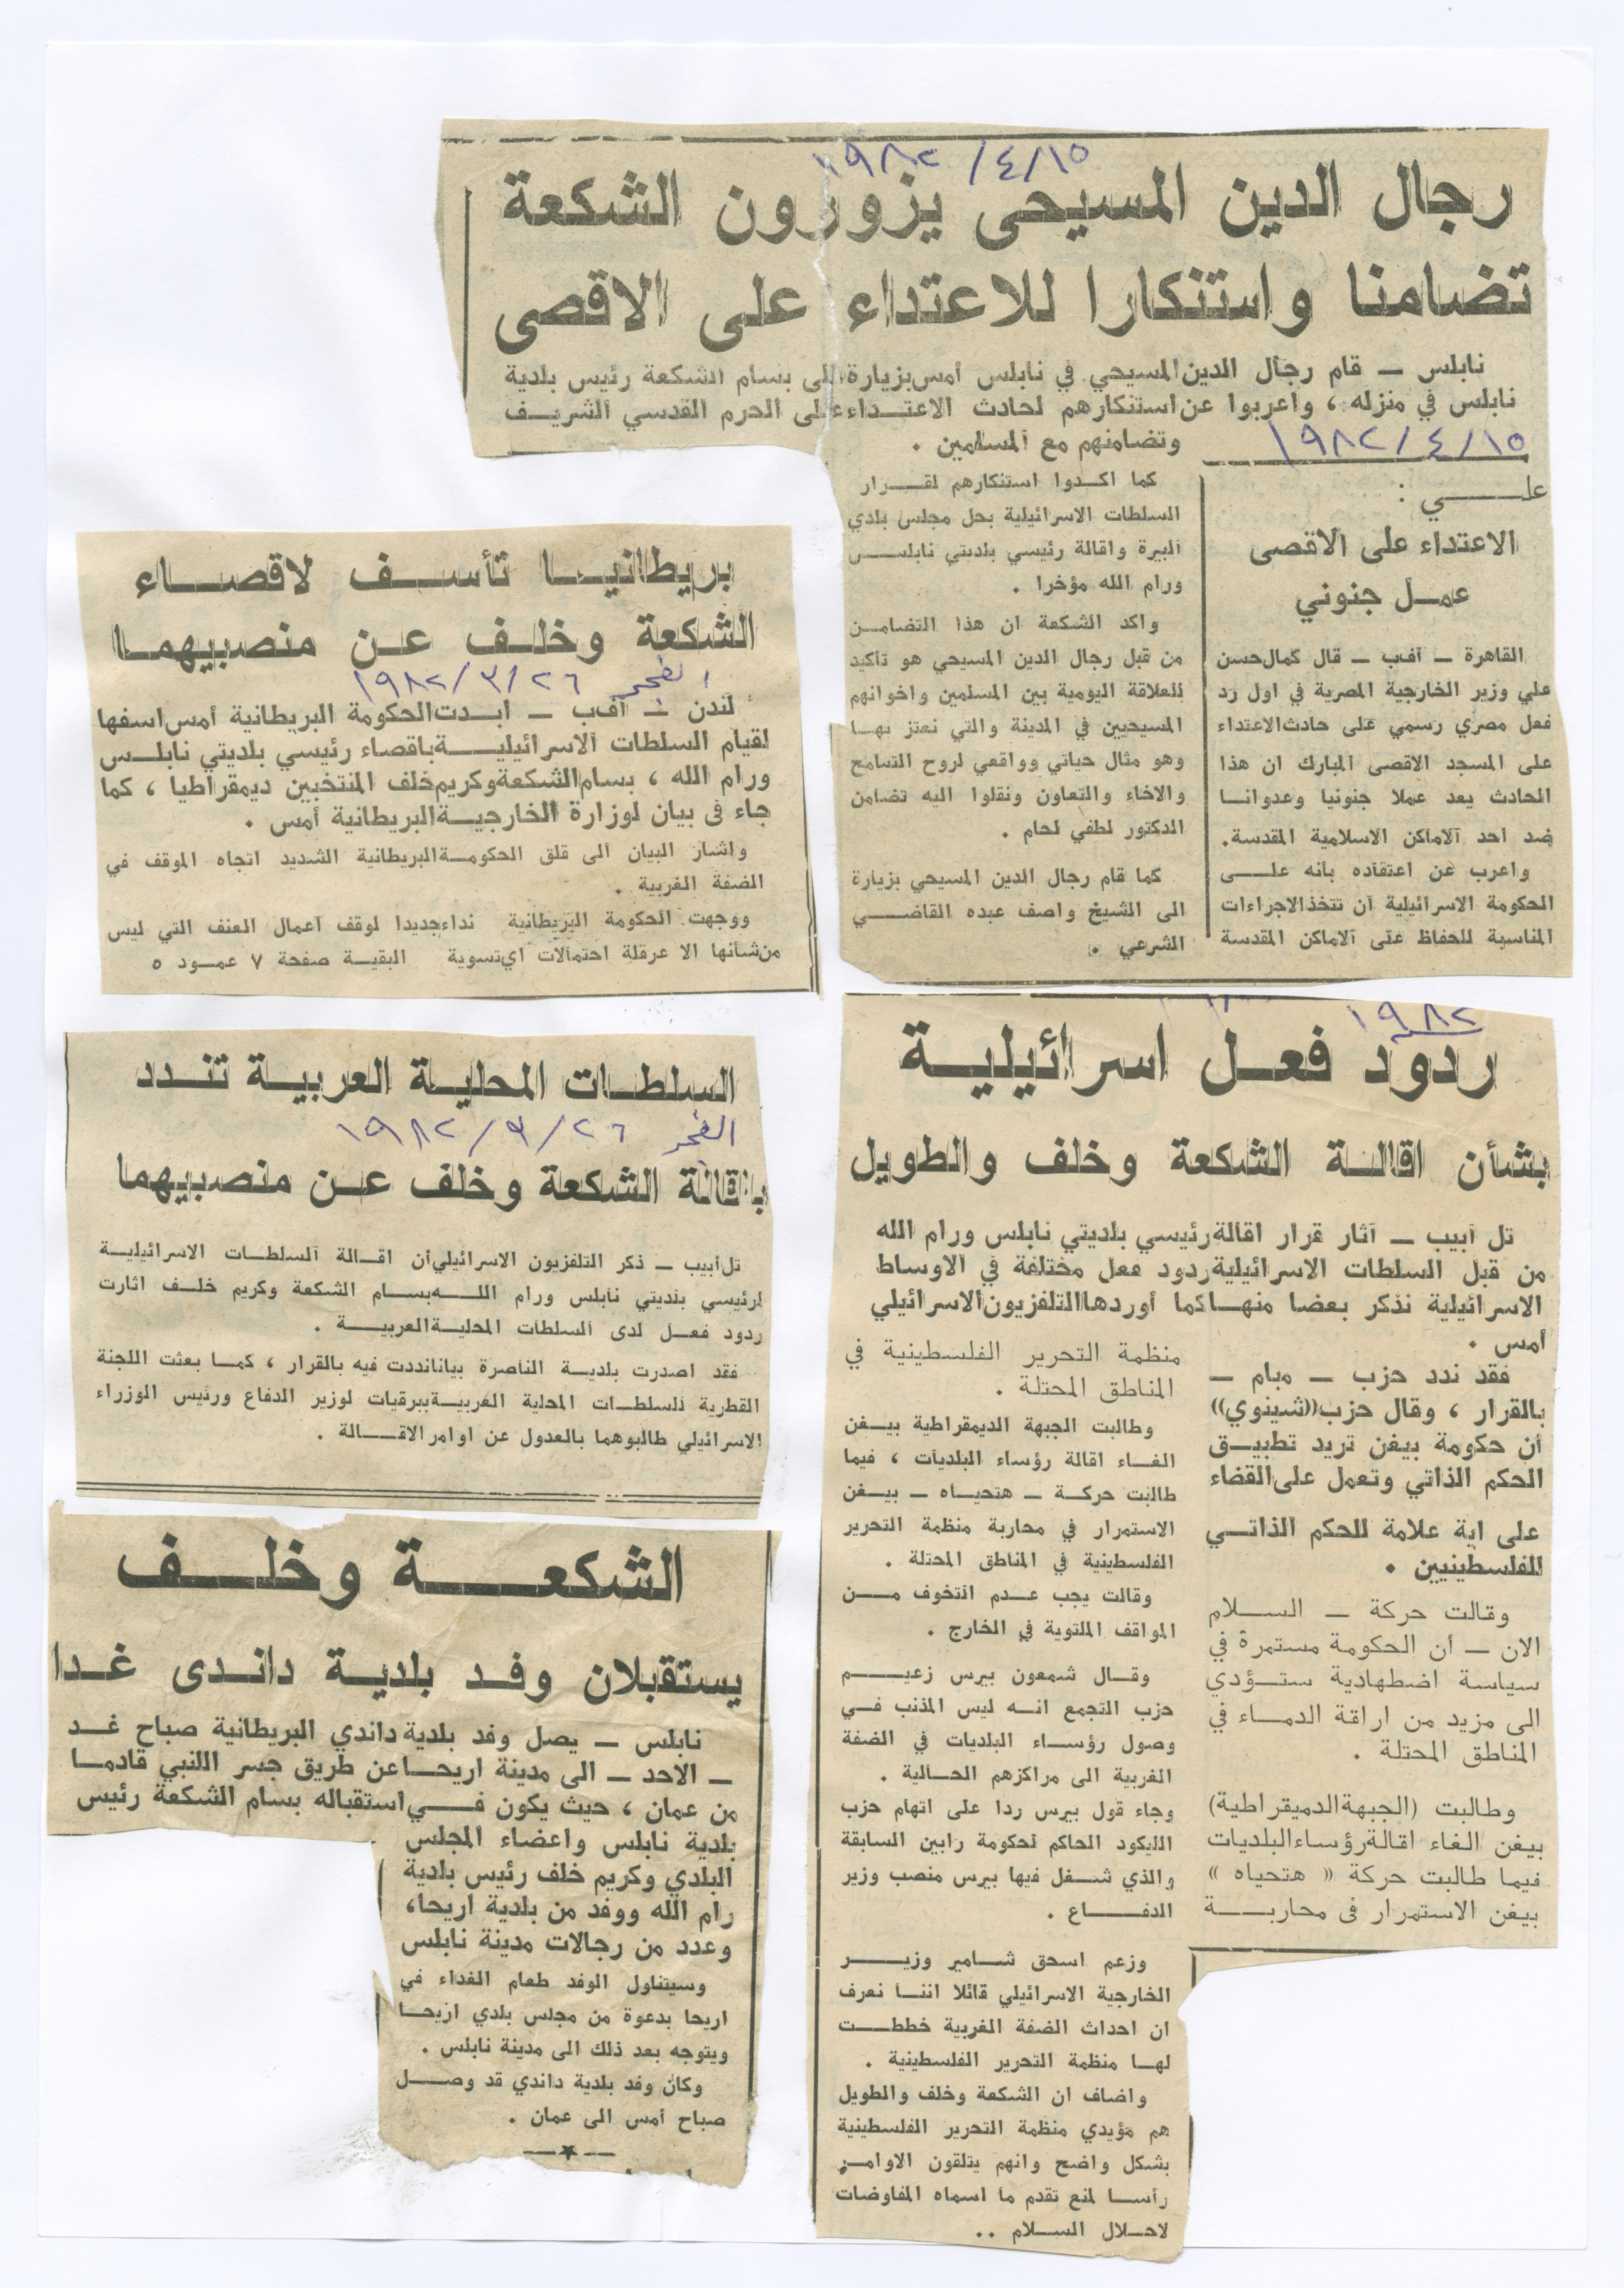 ١٩٨٢ /٤/١٥
رجال الدين المسيحى يزورون الشكعة
تضامنا واستنكارا للاعتداء على الاقصى
نابلس ــ قام رجال الدين المسيحي في نابلس أمس بزيارة الى بسام الشكعة رئيس بلدية
نابلس في منزله ، واعربوا عن استنكارهم لحادث الاعتداء على الحرم القدسي الشريف
وتضامنهم مع المسلمين .
كما اكدوا استنكارهم لقرار
السلطات الاسرائيلية بحل مجلس بلدي
البيرة واقالة رئيسي بلديتي نابلس
ورام الله مؤخرا .
واكد الشكعة ان هذا التضامن
من قبل رجال الدين المسيحي هو تأكيد
للعلاقة اليومية بين المسلمين واخوانهم
المسيحيين في المدينة والتي نعتز بها
وهو مثال حياتي وواقعي لروح التسامح
والاخاء والتعاون ونقلوا اليه تضامن
الدكتور لطفي لحام .
كما قام رجال الدين المسيحي بزيارة
الى الشيخ واصف عبده القاضي
الشرعي .
١٩٨٢/٤/١٥
علي :
الاعتداء على الاقصى
عمل جنوني
القاهرة ــ أفب ــ قال كمال حسن
علي وزير الخارجية المصرية في اول رد
فعل مصري رسمي على حادث الاعتداء
على المسجد الاقصى المبارك ان هذا
الحادث يعد عملا جنونيا وعدوانا
ضد احد الاماكن الاسلامية المقدسة.
واعرب عن اعتقاده بأنه على
الحكومة الاسرائيلية أن تتخذ الاجراءات
المناسبة للحفاظ على الاماكن المقدسة
بريطانيا تأسف لاقصاء
الشكعة وخلف عن منصبيهما
الفجر ١٩٨٢/٣/٢٦
لندن ــ أفب ــ ابدت الحكومة البريطانية أمس اسفها
لقيام السلطات الاسرائيلية باقصاء رئيسي بلديتي نابلس
ورام الله ، بسام الشكعة وكريم خلف المنتخبين ديمقراطيا ، كما
جاء فى بيان لوزارة الخارجية البريطانية أمس .
واشار البيان الى قلق الحكومة البريطانية الشديد اتجاه الموقف في
الضفة الغربية .
ووجهت الحكومة البريطانية نداء جديدا لوقف أعمال العنف التي ليس
من شأنها الا عرقلة احتمالات اي تسوية البقية صفحة ٧ عمود ٥
السلطات المحلية العربية تندد
الفجر ١٩٨٢/٣/٢٦
باقالة الشكعة وخلف عن منصبيهما
تل أبيب ــ ذكر التلفزيون الاسرائيلي أن اقالة السلطات الاسرائيلية
لرئيسي بلديتي نابلس ورام الله بسام الشكعة وكريم خلف اثارت
ردود فعل لدى السلطات المحلية العربية .
فقد اصدرت بلدية الناصرة بيانا نددت فيه بالقرار ، كما بعثت اللجنة
القطرية للسلطات المحلية العربية ببرقيات لوزير الدفاع ورئيس الوزراء
الاسرائيلي طالبوهما بالعدول عن اوامر الاقالة .
الشكعة وخلف
يستقبلان وفد بلدية داندى غدا
نابلس ــ يصل وفد بلدية داندي البريطانية صباح غد
ــ الاحد ــ الى مدينة اريحا عن طريق جسر اللنبي قادما
من عمان ، حيث يكون في استقباله بسام الشكعة رئيس
بلدية نابلس واعضاء المجلس
البلدي وكريم خلف رئيس بلدية
رام الله ووفد من بلدية اريحا،
وعدد من رجالات مدينة نابلس
وسيتناول الوفد طعام الغداء في
اريحا بدعوة من مجلس بلدي اريحا
ويتوجه بعد ذلك الى مدينة نابلس .
وكان وفد بلدية داندي قد وصل
صباح أمس الى عمان .
١٩٨٢
ردود فعل اسرائيلية
بشأن اقالة الشكعة وخلف والطويل
تل أبيب ــ أثار قرار اقالة رئيسي بلديتي نابلس ورام الله
من قبل السلطات الاسرائيلية ردود فعل مختلفة في الاوساط
الاسرائيلية نذكر بعضا منها كما أوردها التلفزيون الاسرائيلي
أمس .
فقد ندد حزب ــ مبام ــ
بالقرار ، وقال حزب ((شينوي))
أن حكومة بيغن تريد تطبيق
الحكم الذاتي وتعمل على القضاء
على اية علامة للحكم الذاتي
للفلسطينيين .
وقالت حركة ــ السلام
الان ــ أن الحكومة مستمرة في
سياسة اضطهادية ستؤدي
الى مزيد من اراقة الدماء في
المناطق المحتلة .
وطالبت (الجبهة الدميقراطية)
بيغن الغاء اقالة رؤساء البلديات
فيما طالبت حركة « هتحياه »
بيغن الاستمرار فى محاربة
منظمة التحرير الفلسطينية في
المناطق المحتلة .
وطالبت الجبهة الديمقراطية بيغن
الغاء اقالة رؤساء البلديات ، فيما
طالبت حركة ــ هتحياه ــ بيغن
الاستمرار في محاربة منظمة التحرير
الفلسطينية في المناطق المحتلة .
وقالت يجب عدم التخوف من
المواقف الملتوية في الخارج .
وقال شمعون بيرس زعيم
حزب التجمع انه ليس المذنب في
وصول رؤساء البلديات في الضفة
الغربية الى مراكزهم الحالية .
وجاء قول بيرس ردا على اتهام حزب
الليكود الحاكم لحكومة رابين السابقة
والذي شغل فيها بيرس منصب وزير
الدفاع .
وزعم اسحق شامير وزير
الخارجية الاسرائيلي قائلا اننا نعرف
ان احداث الضفة الغربية خططت
لها منظمة التحرير الفلسطينية .
واضاف ان الشكعة وخلف والطويل
هم مؤيدي منظمة التحرير الفلسطينية
بشكل واضح وانهم يتلقون الاوامر
رأسا لمنع تقدم ما اسماه المفاوضات
لاحلال السلام ..